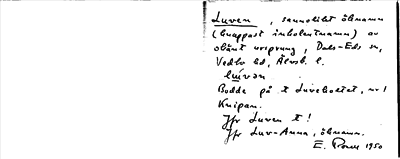 Luven, sannolikt öknamn
(knappast inkolentnamn) av
okänt ursprung, Dals-Eds sn,
Vedbo hd, Älvsb. l.
Bodde på t Luvebostet, nr 1
Knipan.
Jfr Luven t!
Jfr Luv-Anna, öknamn.
E. 1950